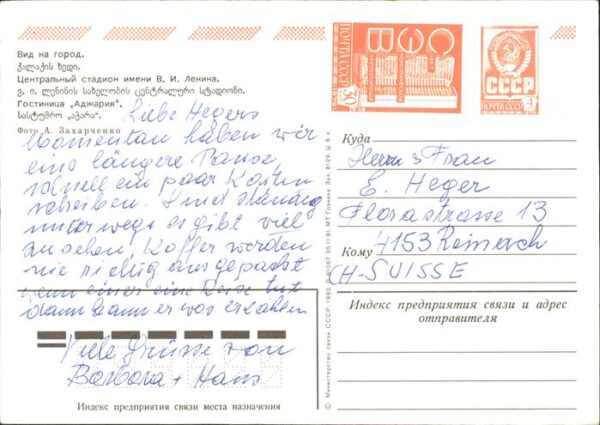 Вид на город.
ქალაქის ხედი.
Центральный стадион имени В. И. Ленина,
ვ. ი. ლენინის სახელობის ცენტრალური სტადიონი.
Гостиница "Аджария",
სასტუმრო „აჭარა".
Фото А. Захарченко
Liebe Hegers
Momentan haben wir
eine längere Pause,
schnell ein paar Karten
schreiben. Sind ständig
unterwegs es gibt viel
zu sehen, Koffer werden
nie richtig ausgepackt
wenn einer eine Reise tut
dann kann er was erzählen
Viele Grüsse von
Barbara + Hans
Индекс предприятия связи места назначения
ПОЧТА СССР
СЭВ
30
СССР
ПОЧТА СССР
4
Куда
Herrn & Frau
E. Heger
Florastrasse 13
Кому
4153 Reinach
H-SUISSE
Индекс предприятия связи и адрес
отправителя
© Министерство связи СССР. 1982